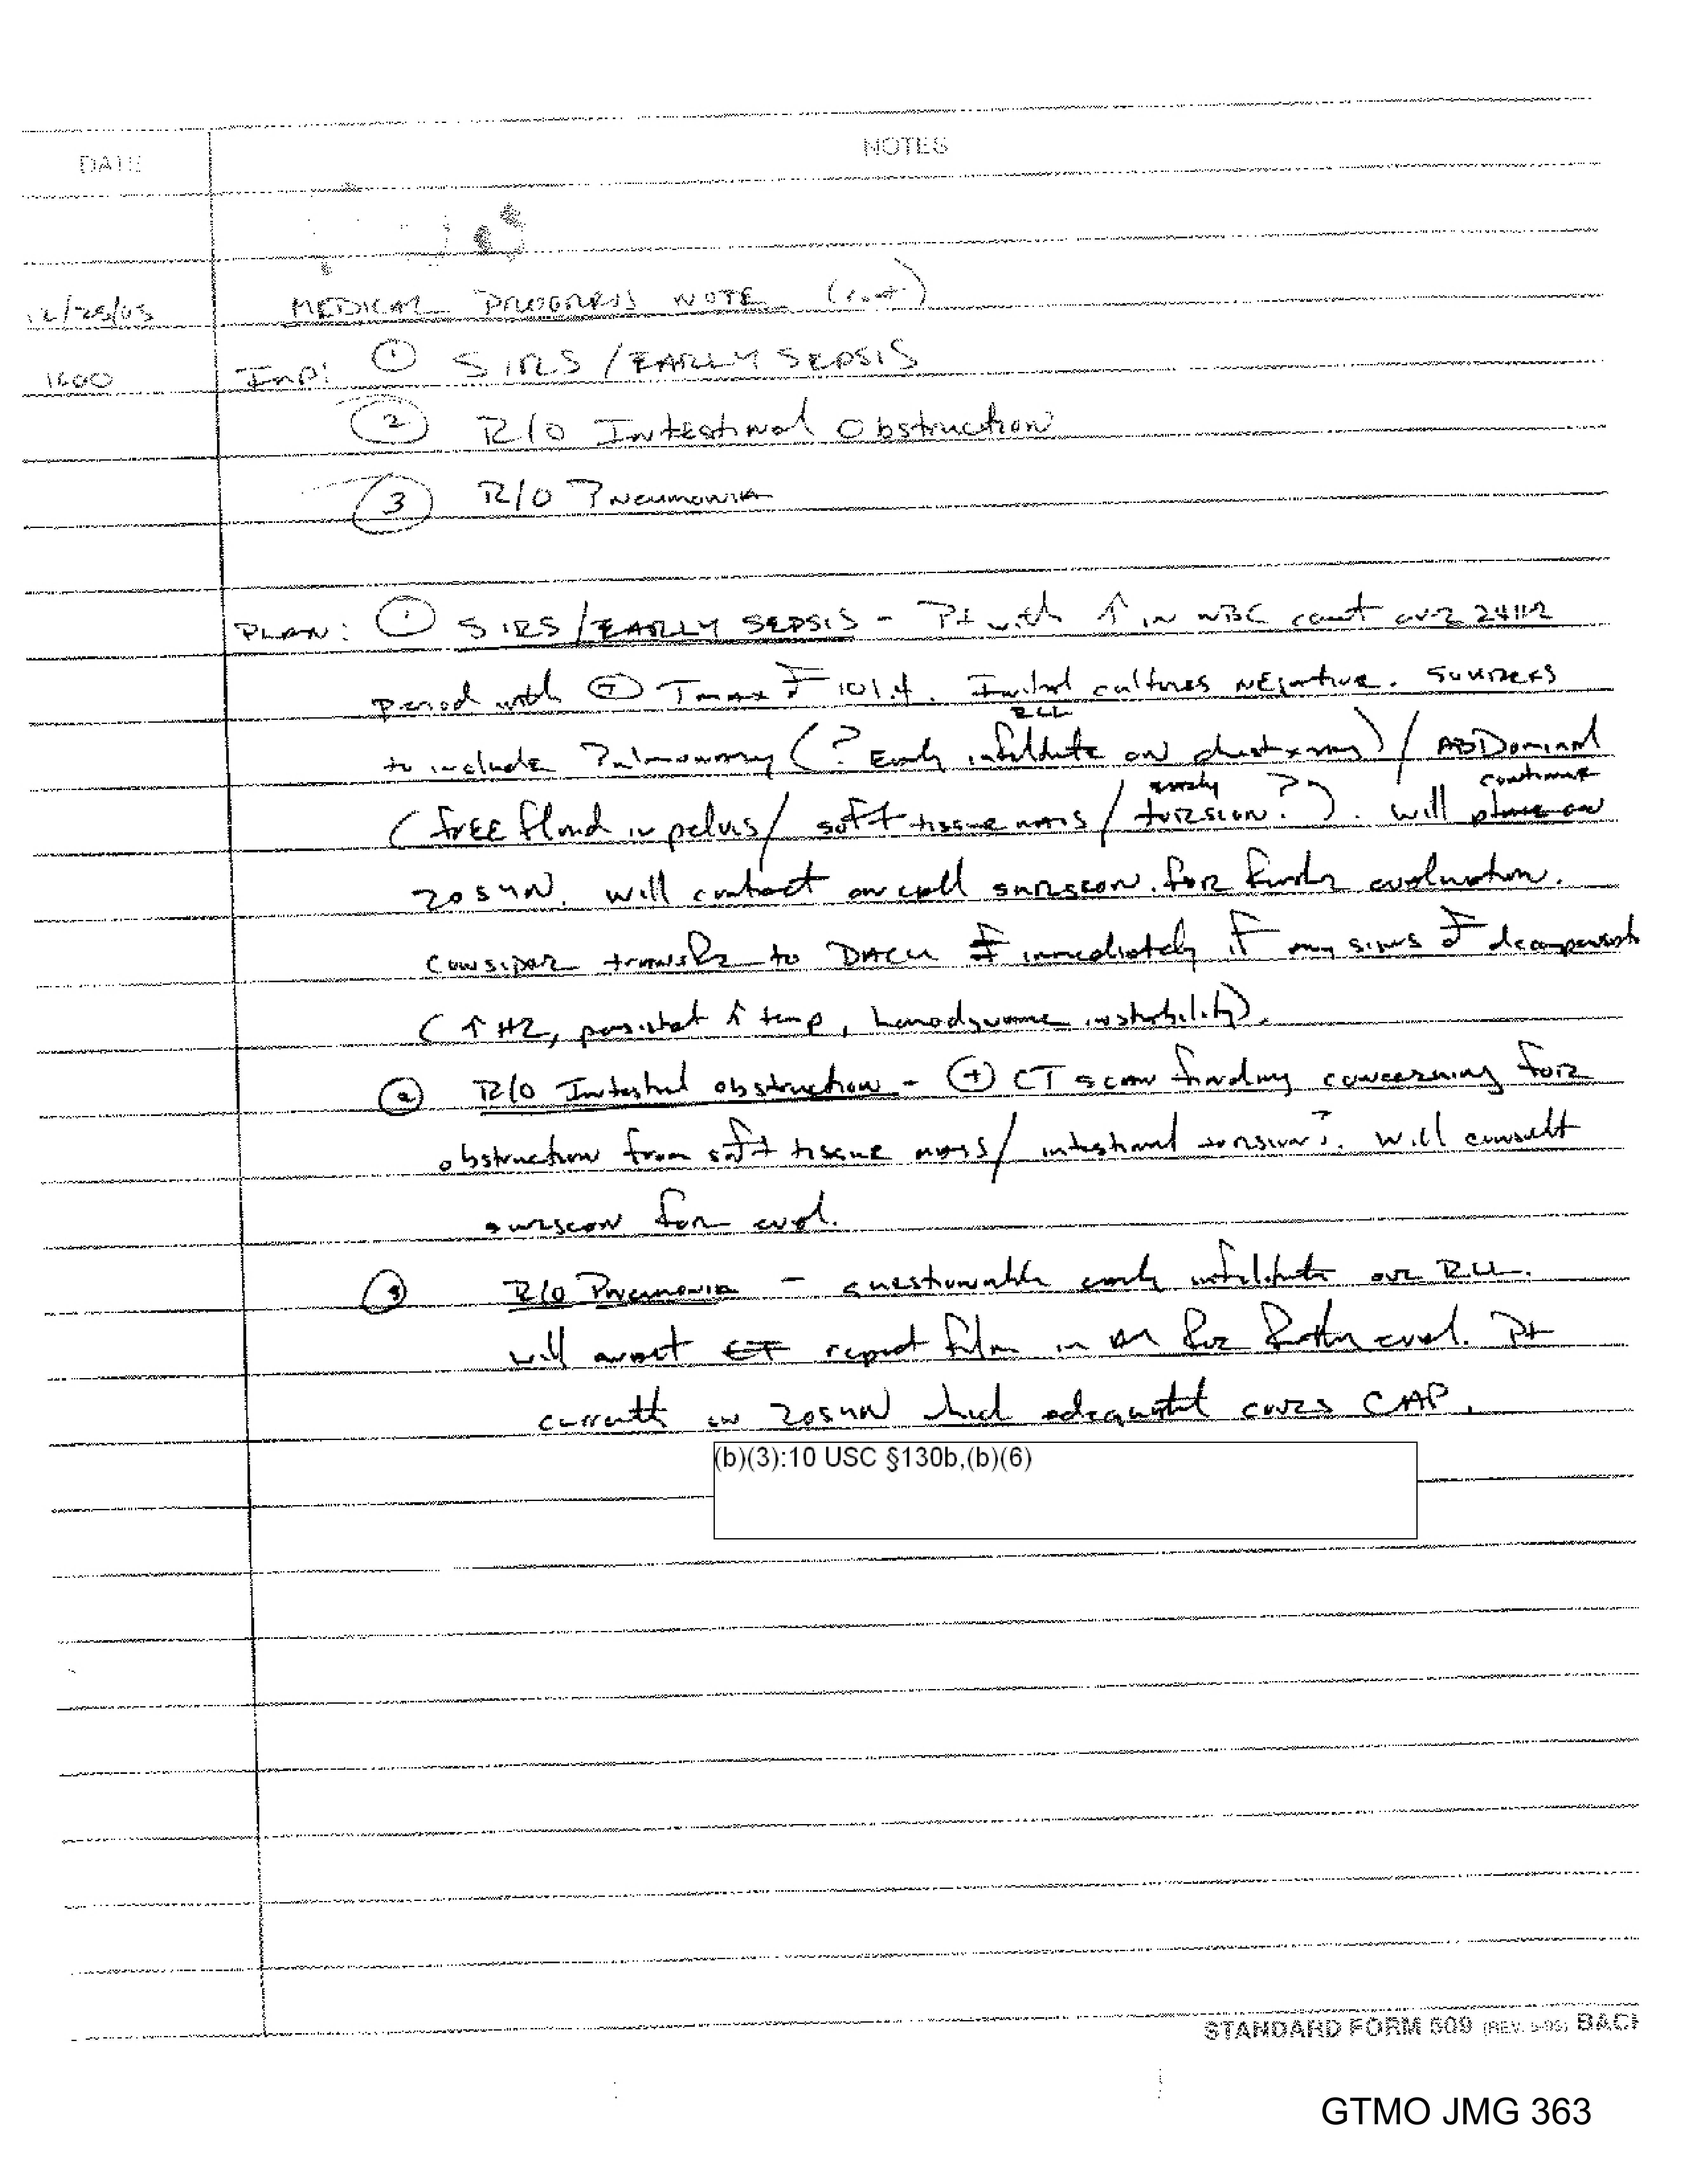 DATE NOTES
12/25/03 MEDICAL PROGRESS NOTE (cont)
1600 Imp: ① SIRS / EARLY SEPSIS
② R/O Intestinal Obstruction
③ R/O Pneumonia
PLAN: ① SIRS / EARLY SEPSIS - Pt with ↑ in WBC count over 24 HR
period with ⊕ Tmax of 101.4. Initial cultures negative. Sources
RLL
to include Pulmonary (? Early infiltrate on chest xray) / ABDominal
early continue
(free fluid in pelvis / soft tissue mass / torsion??). Will place on
ZOSYN. Will contact on call surgeon for further evaluation.
Consider transfer to DACU immediately if any signs of decompensation
(↑ HR, persistent ↑ temp, hemodynamic instability).
② R/O Intestinal obstruction - ⊕ CT scan finding concerning for
obstruction from soft tissue mass / intestinal torsion?. Will consult
surgeon for eval.
③ R/O Pneumonia - questionable early infiltrate over RLL.
Will await CT repeat film in AM for further eval. Pt
currently on ZOSYN which adequately covers CAP.
(b)(3):10 USC §130b,(b)(6)
STANDARD FORM 509 (REV. 5-95) BACK
GTMO JMG 363